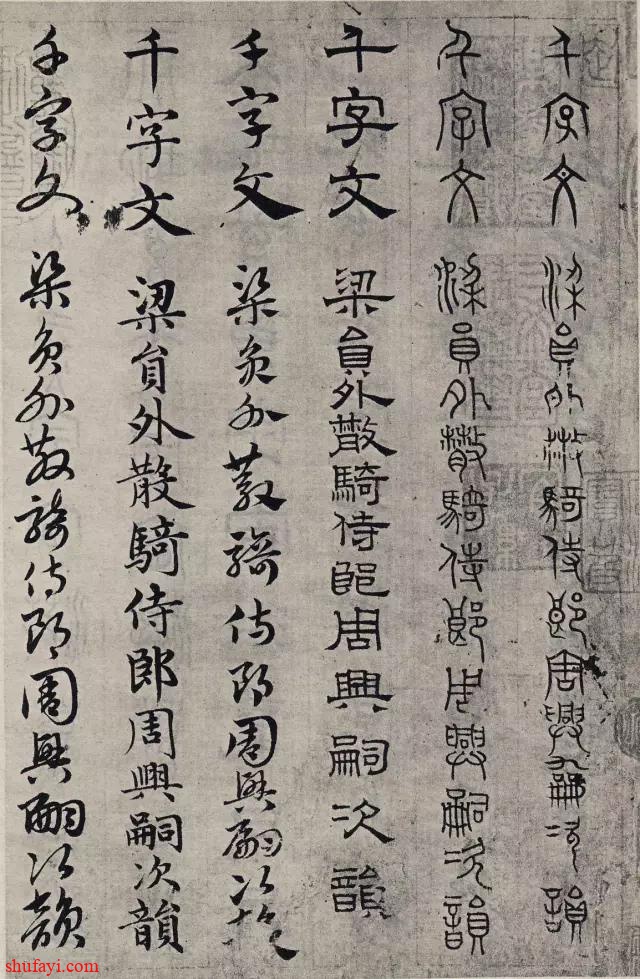 千字文 梁員外散騎侍郎周興嗣次韻
千字文 梁員外散騎侍郎周興嗣次韻
千字文 梁員外散騎侍郎周興嗣次韻
千字文 梁員外散騎侍郎周興嗣次韻
千字文 梁員外散騎侍郎周興嗣次韻
千字文 梁員外散騎侍郎周興嗣次韻
shufayi.com